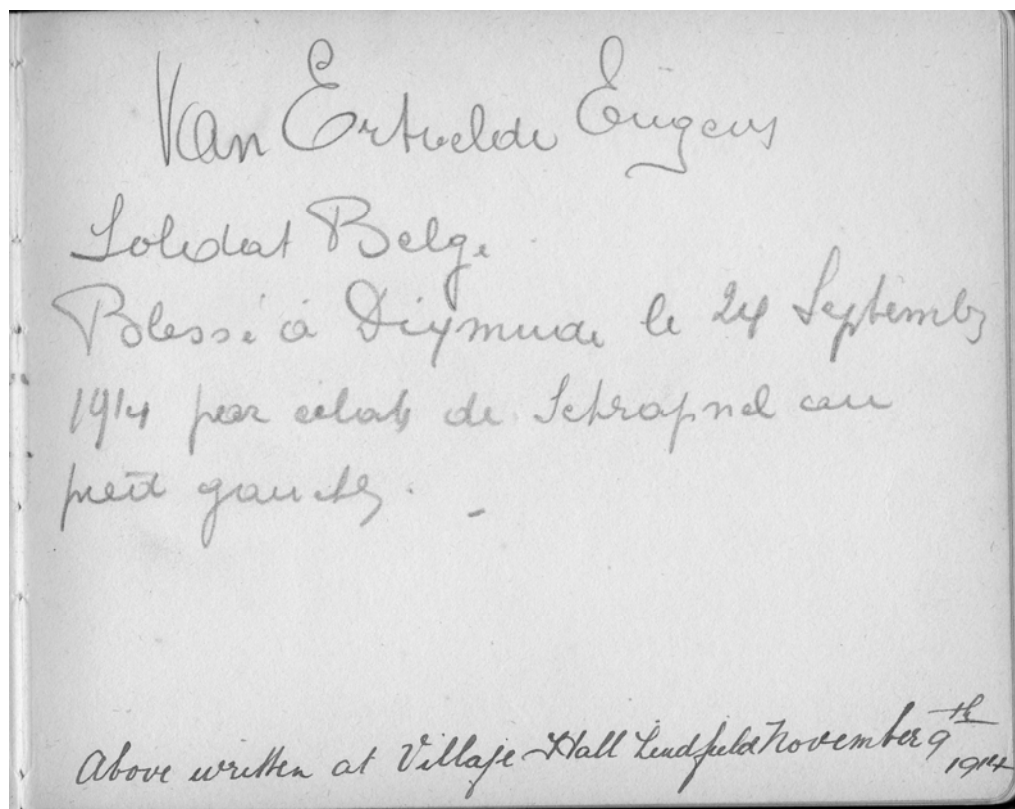 Van Ertvelde Eugens
Soldat Belge
Blessé à Dixmude le 24 Septembre
1914 par eclats de Schrapnel au
pied gauche.
Above written at Village Hall Lindfield November 9th 1914